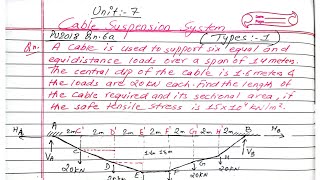 Unit:- 7
Cable Suspension System
(Types:-1)
PU2018 Qn.6a
Qn. A cable is used to support six equal and
equidistance loads over a span of 14 meter.
The central dip of the cable is 1.6 meter &
the loads are 20 kN each. find the length of
the cable required and its sectional area, if
the safe tensile stress is 15x10⁴ kN/m².
HA A 2m C' 2m D' 2m E' 2m F' 2m 2m 2m B HB
VA 1.6 VB
C D E F G H
20kN 20kN 20kN 20kN